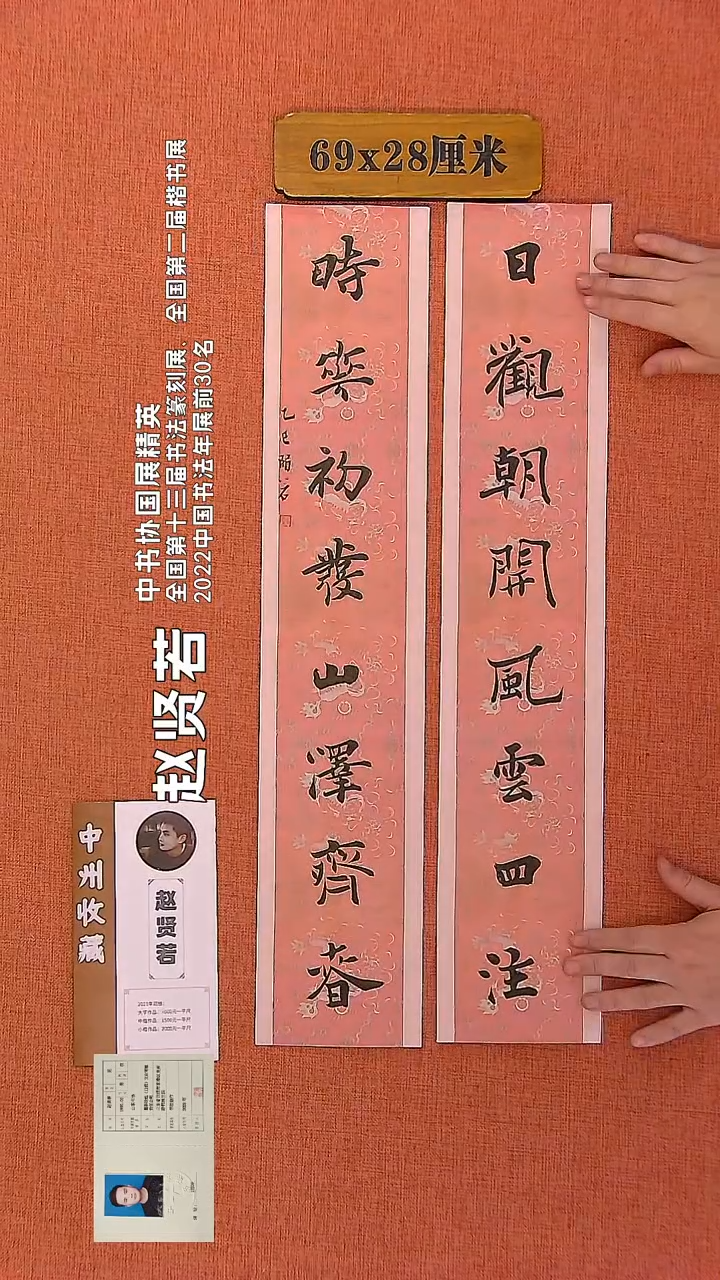 69x28厘米
日觀朝開風雲四注
時華初發山澤齊春
乙巳 賢若
中书协国展精英
全国第十三届书法篆刻展、全国第二届楷书展
2022中国书法年展前30名
赵贤若
赵贤若